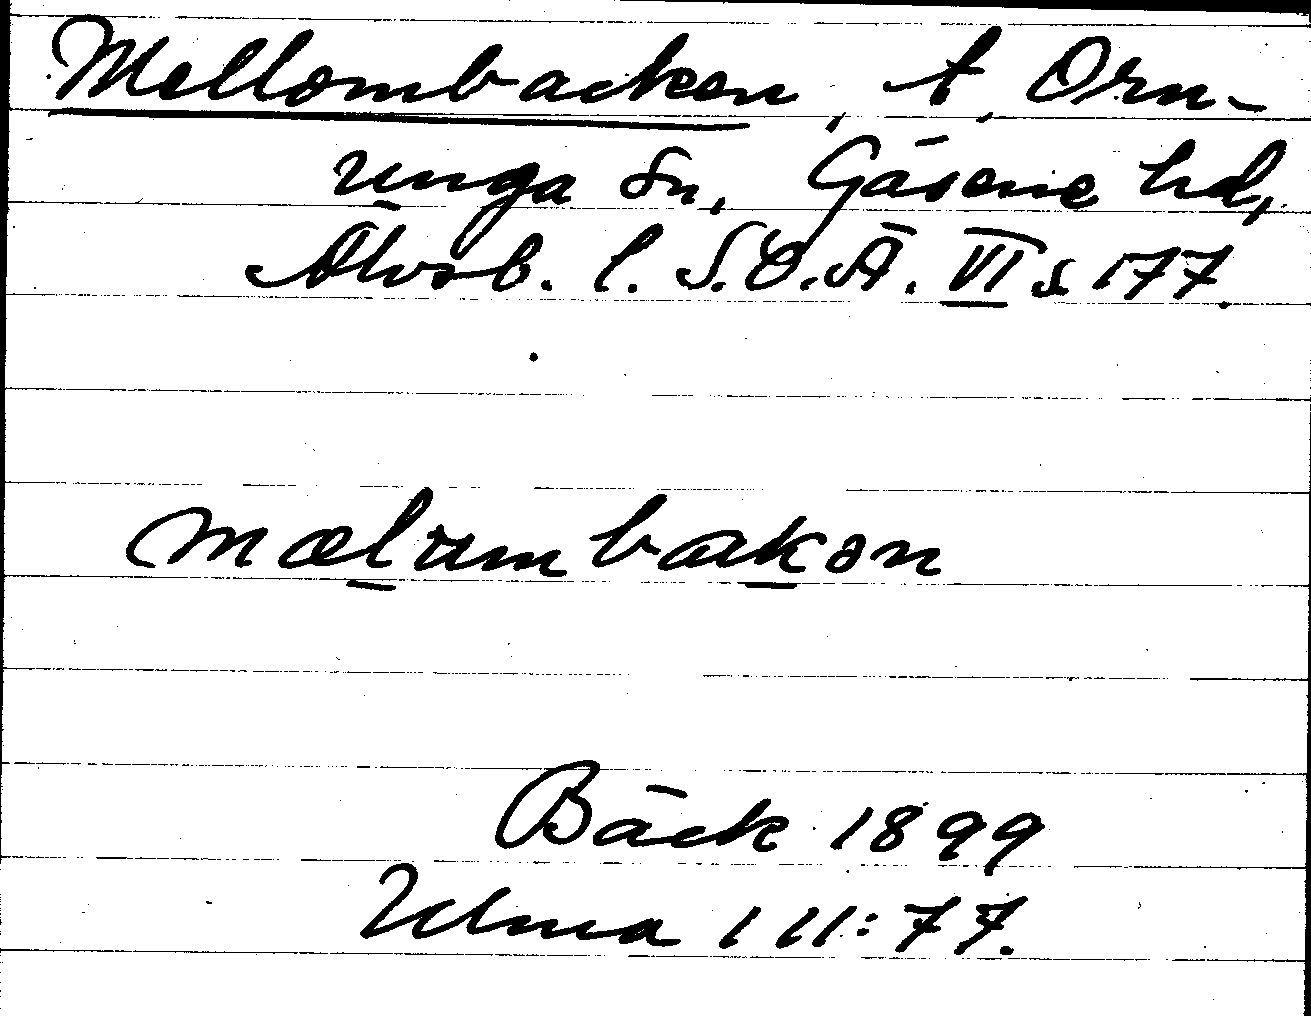 Mellombacken, t, Orn-
unga sn, Gäsene hd,
Älvsb. l. S.O.Ä. VI s 177.
mælumbakən
Bäck 1899
Ulma 111:77.